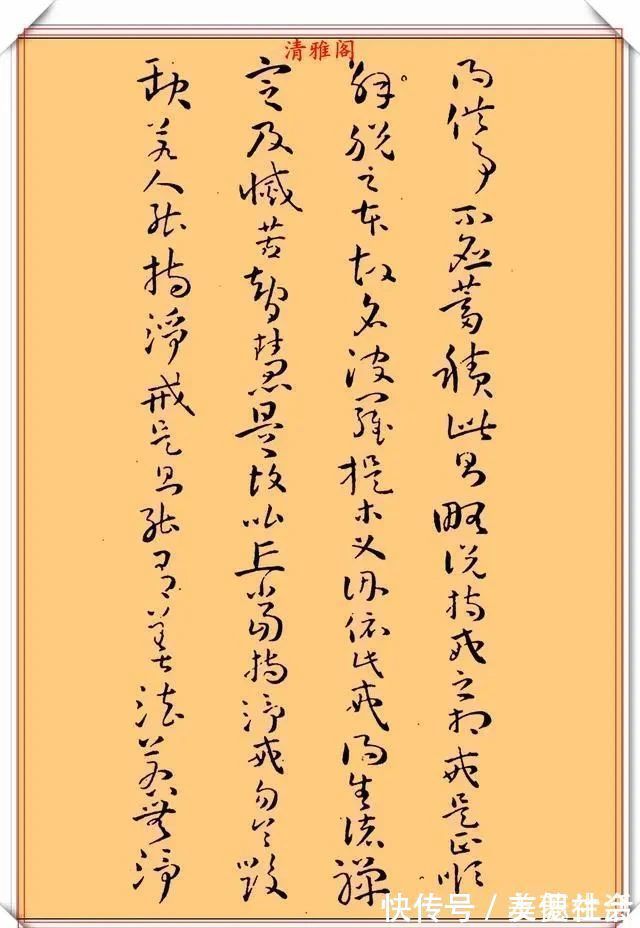 清雅阁
得供事不應蓄積此則略說持戒之相戒是正順
解脫之本故名波羅提木叉因依此戒得生諸禪
定及滅苦智慧是故比丘當持淨戒勿令毀
缺若人能持淨戒是則能有善法若無淨
快传号 /